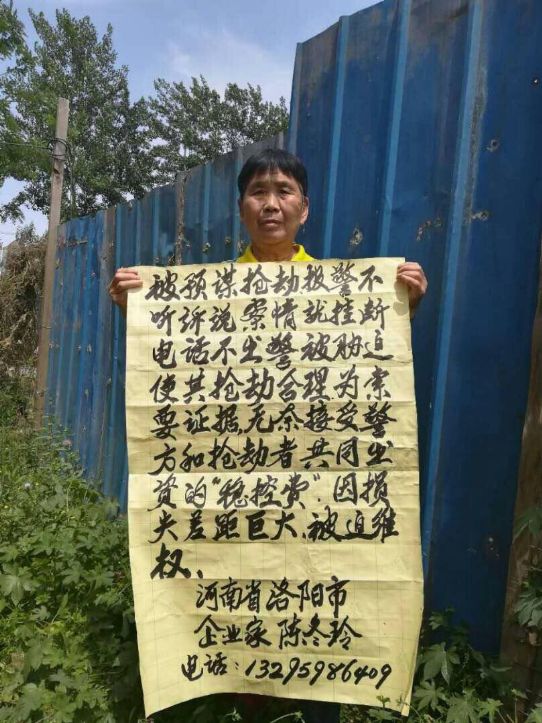 被预谋抢劫报警不
听诉说案情就挂断
电话不出警被胁迫
使其抢劫合理为索
要证据,无奈接受警
方和抢劫者共同出
资的“稳控费”.因损
失差距巨大、被迫维
权、
河南省洛阳市
企业家陈冬玲
电话:13295986409